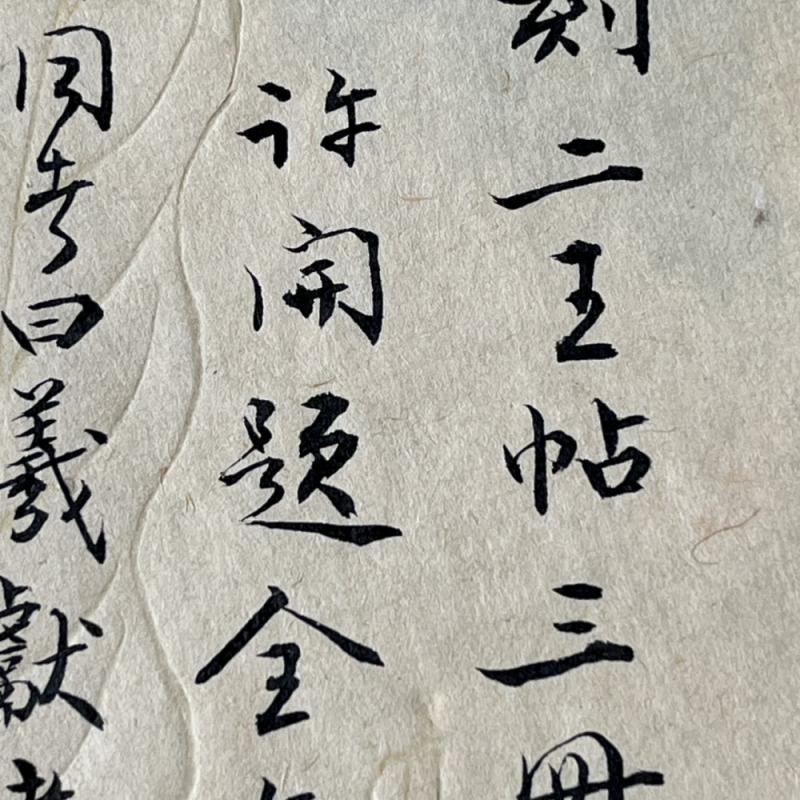 刻二王帖三冊
許開題全
同考曰羲獻